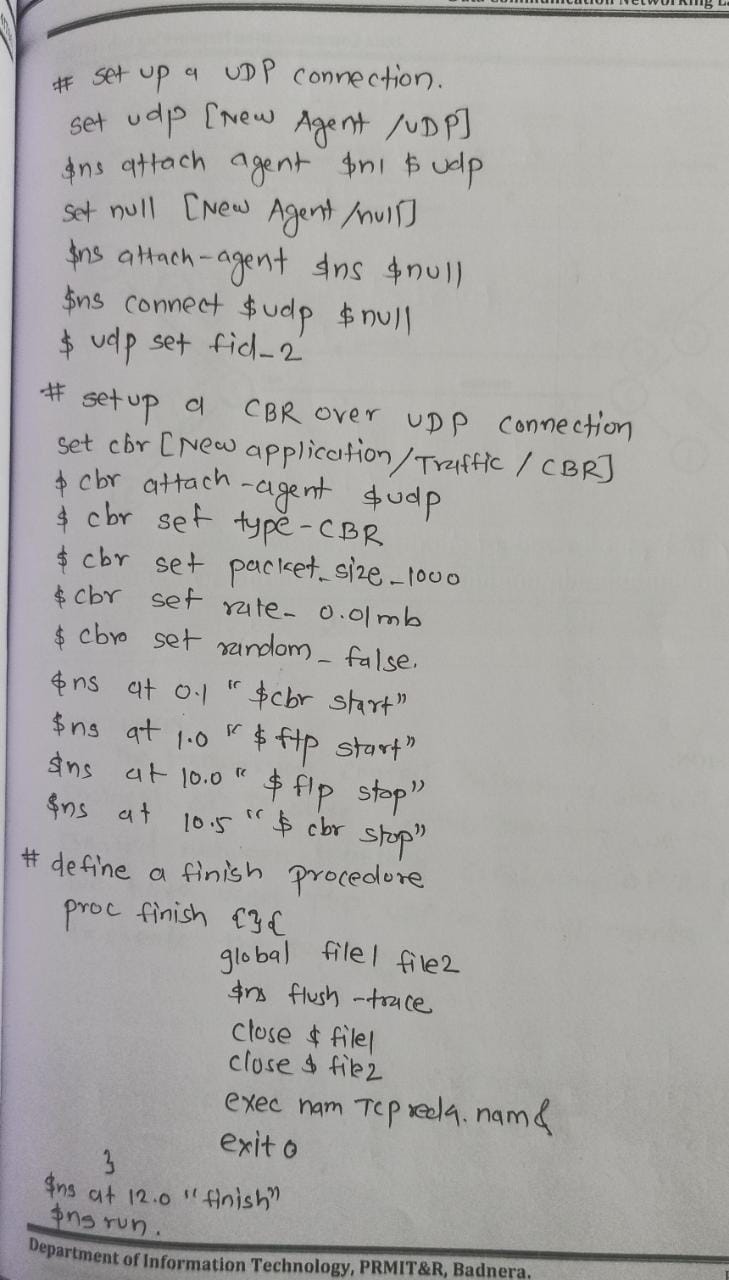 # set up a UDP connection.
set udp [New Agent /UDP]
$ns attach agent $n1 $ udp
set null [New Agent /null]
$ns attach-agent $ns $null
$ns connect $udp $null
$ udp set fid_2
# setup a CBR over UDP connection
set cbr [New application/Traffic / CBR]
$ cbr attach-agent $udp
$ cbr set type-CBR
$ cbr set packet_size_1000
$ cbr set rate_ 0.01mb
$ cbro set random_ false.
$ns at 0.1 "$cbr start"
$ns at 1.0 "$ ftp start"
$ns at 10.0 "$ ftp stop"
$ns at 10.5 "$ cbr stop"
# define a finish procedore
proc finish {}{
global file1 file2
$ns flush -trace
close $ file1
close $ file2
exec nam Tcp red4. nam &
exit 0
}
$ns at 12.0 "finish"
$ns run.
Department of Information Technology, PRMIT&R, Badnera.